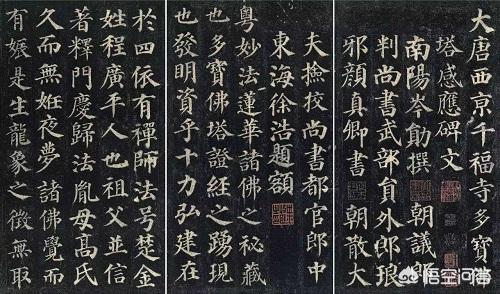 大唐西亰千福寺多寶
塔感應碑文
南陽岑勛撰 朝議郎
判尚書武部貟外郎琅
邪顏真卿書 朝散大
夫撿挍尚書都官郎中
東海徐浩題額
粵妙法蓮華諸佛之秘藏
也多寶佛塔證經之踴現
也發明資乎十力弘建在
於四依有禪師法号楚金
姓程廣平人也祖父並信
著釋門慶歸法胤母髙氏
久而無姙夜夢諸佛覺而
有娠是生龍象之徵無取
悟空问答